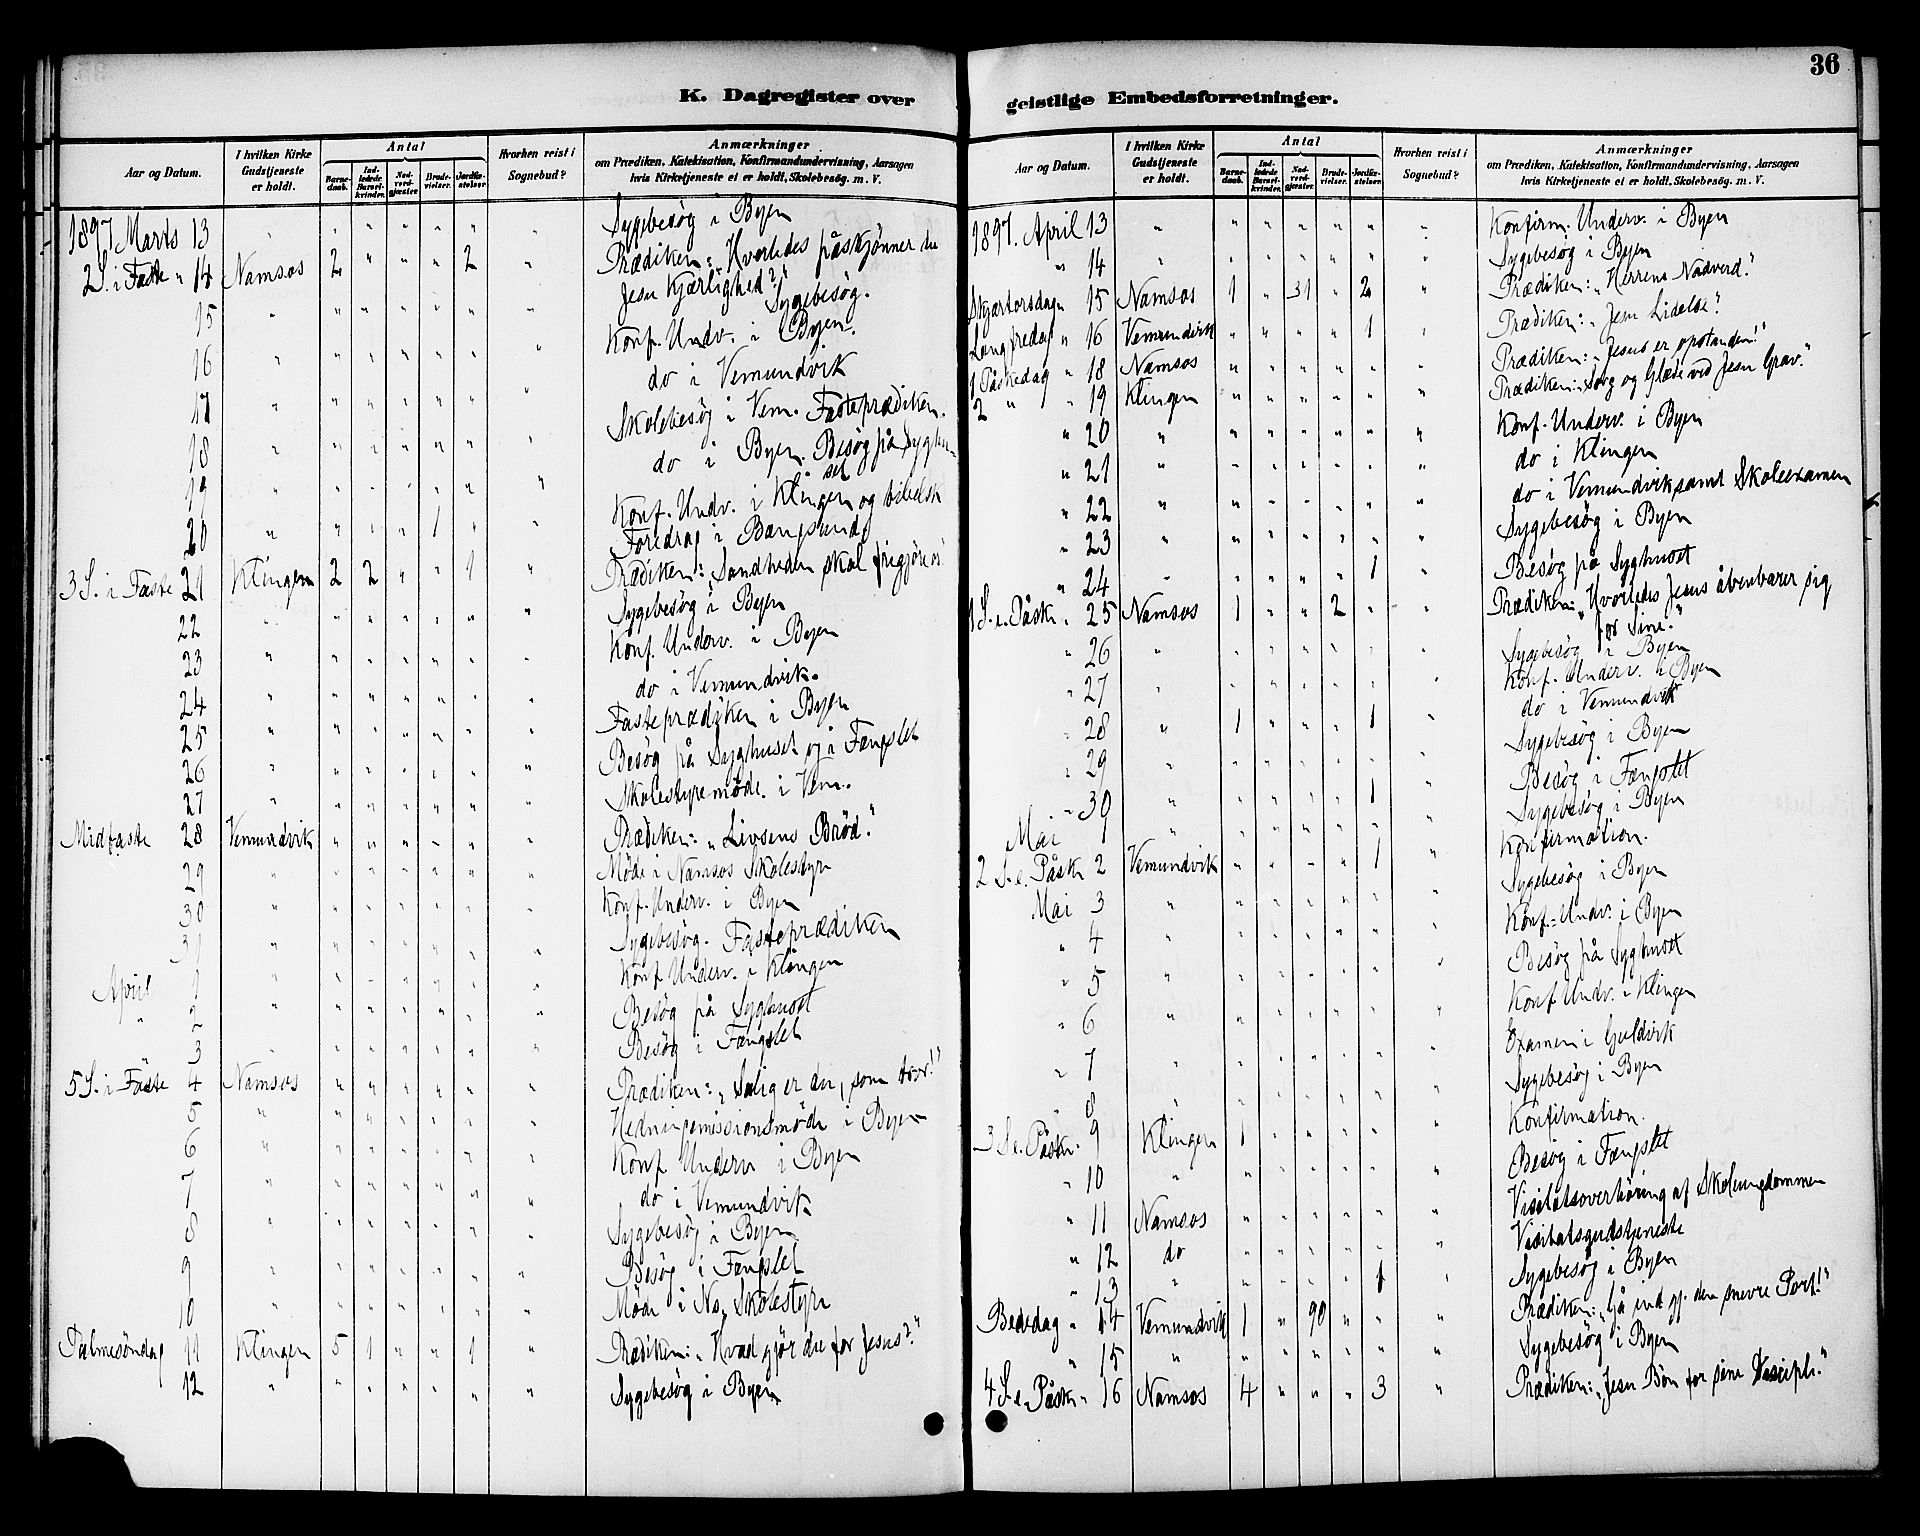 36
K. Dagregister over
Aar og Datum. I hvilken Kirke Gudstjeneste er holdt. Antal Barnedaab. Indledede Barselkvinder. Nadverdgjæster. Brudevielser. Jordfæstelser. Hvorhen reist i Sognebud? Anmærkninger om Prædiken, Katekisation, Konfirmandundervisning, Aarsagen hvis Kirketjeneste ei er holdt, Skolebesög. m. V.
1897 Marts 13 " " " " " " " Sygebesøg i Byen
2 S. i Faste " 14 Namsos 2 " " " 2 " Prædiken: "Hvorledes påskjønner du
Jesu Kjærlighed?" Sygebesøg.
15 " " " " " " " Konf. Undv. i Byen.
16 " " " " " " " do i Vemundvik
17 " " " " " " " Skolebesøg i Vem. Fasteprædiken.
18 " " " " " " " do i Byen. Besøg på Syghu-
set
19 " " " " " " " Konf. Undv. i Klingen og bibelsk
20 " " " " 1 " " Foredrag i Bangsund
3 S. i Faste 21 Klingen 2 2 " " 1 " Prædiken: "Sandheden skal frigjøre os
22 " " " " " " " Sygebesøg i Byen
23 " " " " " " " Konf. Underv. i Byen
24 " " " " " " " do i Vemundvik.
25 " " " " " " " Fasteprædiken i Byen
26 " " " " " " " Besøg på Syghuset og i Fængslet
27 " " " " " " " Skolestyremöde. i Vem.
Midfaste 28 Vemundvik " " " " " " Prædiken: "Livsens Brød."
29 " " " " " " " Möde i Namsos Skolestyre
30 " " " " " " " Konf. Underv. i Byen
31 " " " " " " " Sygebesøg. Fasteprædiken
April 1 " " " " " " " Konf Underv. i Klingen
" 2 " " " " " " " Besøg på Syghuset
3 " " " " " " " Besøg i Fængslet
5 S. i Faste 4 Namsos " " " " " " Prædiken: "Salig er den, som tror!"
5 " " " " " " " Hedningemissionsmöde i Byen
6 " " " " " " " Konf Underv i Byen
7 " " " " " " " do i Vemundvik
8 " " " " " " " Sygebesøg i Byen
9 " " " " " " " Besøg i Fængslet
10 " " " " " " " Möde i Ns. Skolestyre
Palmesöndag 11 Klingen 5 1 " " 1 " Prædiken: "Hvad gjör du for Jesus?"
12 " " " " " " " Sygebesøg i Byen
geistlige Embedsforretninger.
Aar og Datum. I hvilken Kirke Gudstjeneste er holdt. Antal Barnedaab. Indledede Barselkvinder. Nadverdgjæster. Brudevielser. Jordfæstelser. Hvorhen reist i Sognebud? Anmærkninger om Prædiken, Katekisation, Konfirmandundervisning, Aarsagen hvis Kirketjeneste ei er holdt, Skolebesög. m. V.
1897. April 13 " " " " " " " Konfirm. Underv. i Byen
" 14 " " " " " " " Sygebesøg i Byen
Skjærtorsdag " 15 Namsos 1 " 31 " 2 " Prædiken: "Herrens Nadverd."
Langfredag " 16 Vemundvik " " " " 1 " Prædiken: "Jesu Lidelse".
1 Påskedag " 18 Namsos " " " " " " Prædiken: "Jesus er opstanden!"
2 " " 19 Klingen " " " " " " Prædiken: "Sorg og Glæde ved Jesu Grav."
" 20 " " " " " " " Konf. Underv. i Byen
" 21 " " " " " " " do i Klingen
" 22 " " " " " " " do i Vemundvik samt Skoleexamen
" 23 " " " " " " " Sygebesøg i Byen
" 24 " " " " " 1 " Besøg på Syghuset
1 S. e. Påsk. " 25 Namsos 1 " " 2 " " Prædiken: "Hvorledes Jesus åbenbarer sig
for Sine."
" 26 " " " " " " " Sygebesøg i Byen
" 27 " " " " " " " Konf. Underv. i Byen
" 28 " 1 " " " 1 " do i Vemundvik
" 29 " " " " " " " Sygebesøg i Byen
" 30 " " " " " 1 " Besøg i Fængslet
Mai 1 " " " " " " " Sygebesøg i Byen
2 S. e. Påsk 2 Vemundvik " " " " 1 " Konfirmation.
Mai 3 " " " " " " " Sygebesøg i Byen
" 4 " " " " " " " Konf.-Undv. i Byen
" 5 " " " " " " " Besøg på Syghuset
" 6 " " " " " " " Konf Undv. i Klingen
" 7 " " " " " " " Examen i Guldvik
" 8 " " " " " " " Sygebesøg i Byen
3 S e. Påsk. 9 Klingen 1 " " " " " Konfirmation.
" 10 " " " " " " " Besøg i Fængslet
" 11 Namsos " " " " " " Visitatsoverhöring af Skoleungdommen
" 12 do " " " " " " Visitatsgudstjeneste
" 13 " " " " " 1 " Sygebesøg i Byen
Bededag " 14 Vemundvik 1 " 90 " " " Prædiken: "Gå ind gj. den snevre Port!"
" 15 " " " " " " " Sygebesøg i Byen
4 S e. Påsk " 16 Namsos 4 " " " 3 " Prædiken: "Jesu Bön for sine Discipl."